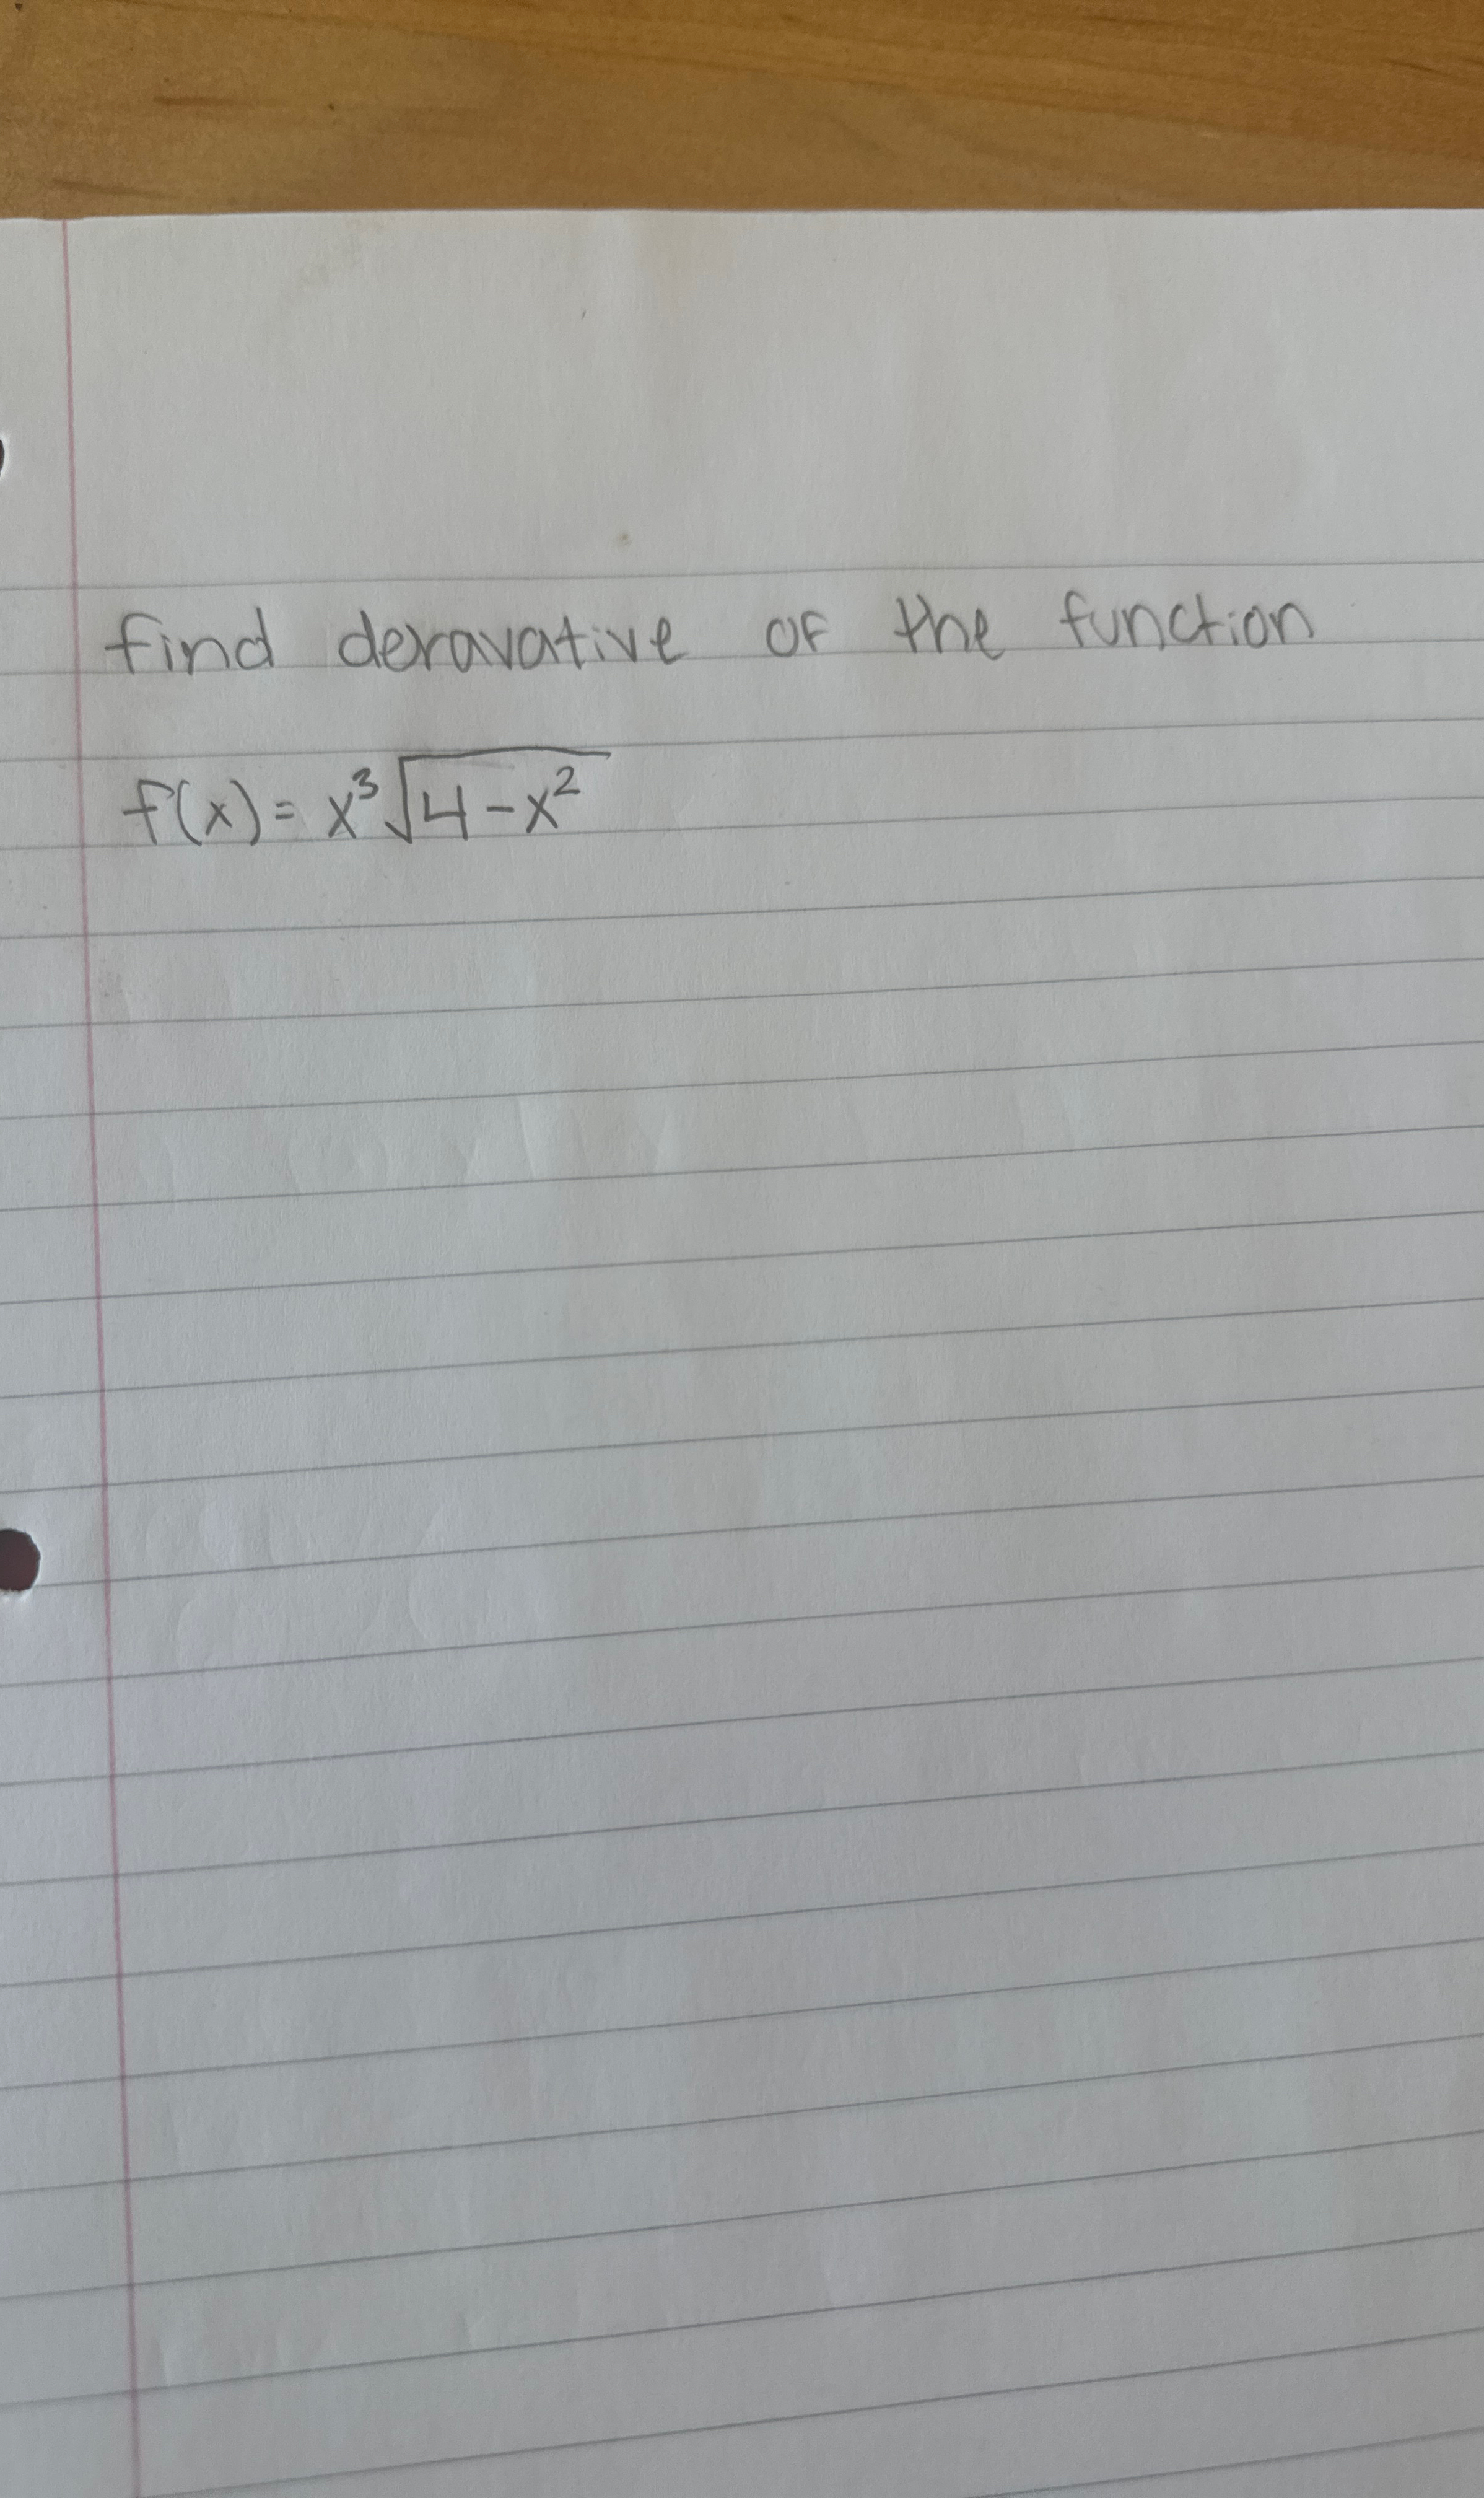 find deravative of the function
f(x) = x³√4-x²